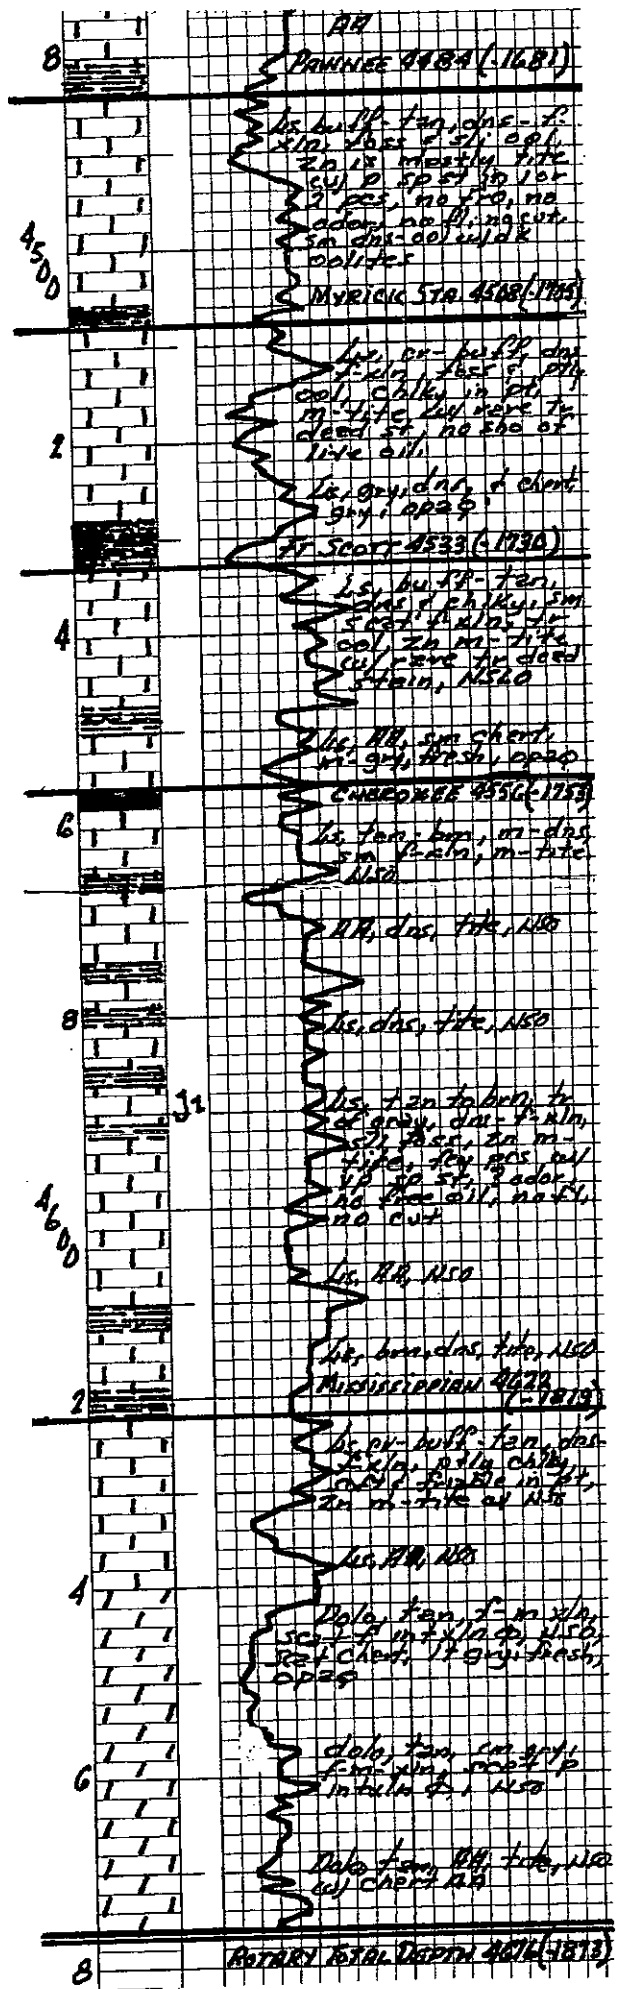 AA
8
PAWNEE 4484 (-1681)
Ls buff-tan, dns-f-
xln, foss & sli ool,
Zn is mostly tite
w/ p sp st in 1 or
2 pcs, no fro, no
odor, no fl, no cut,
sm dns-ool w/dk
oolites
4500
MYRICK STA 4508 (-1705)
Ls, cr-buff, dns
f-xln, foss & ptly
ool, chlky in pt,
m-tite w/ rare tr
dead st, no sho of
live oil,
2
Ls, gry, dns, & chert,
gry, opaq
FT SCOTT 4533 (-1730)
Ls, buff-tan,
dns & chlky, sm
scat f xln, tr
ool, Zn m-tite
w/ rare tr dead
stain, NSLO
4
Ls, AA, sm chert,
m-gry, fresh, opaq
CHEROKEE 4556 (-1753)
6
Ls, tan-brn, m-dns,
sm f-xln, m-tite
NSO
AA, dns, tite, NSO
8
Ls, dns, tite, NSO
Ls, tan to brn, tr
of gray, dns-f-xln,
sli foss, Zn m-
tite, few pcs w/
vp sp st, ? odor,
no free oil, no fl,
no cut
J1
4600
Ls, AA, NSO
Ls, brn, dns, tite, NSO
MISSISSIPPIAN 4622
(-1819)
2
Ls cr-buff-tan, dns-
f xln, ptly chlky,
soft & friable in pt,
Zn m-tite w/ NSO
Ls, AA, NSO
4
Dolo, tan, f-m xln,
scat f intxln φ, NSO,
scat chert, lt gry, fresh,
opaq
dolo, tan, sm gry,
f-m-xln, scat p
intxln φ, NSO
6
Dolo tan, AA, tite, NSO
w/ chert AA
ROTARY TOTAL DEPTH 4676 (-1873)
8